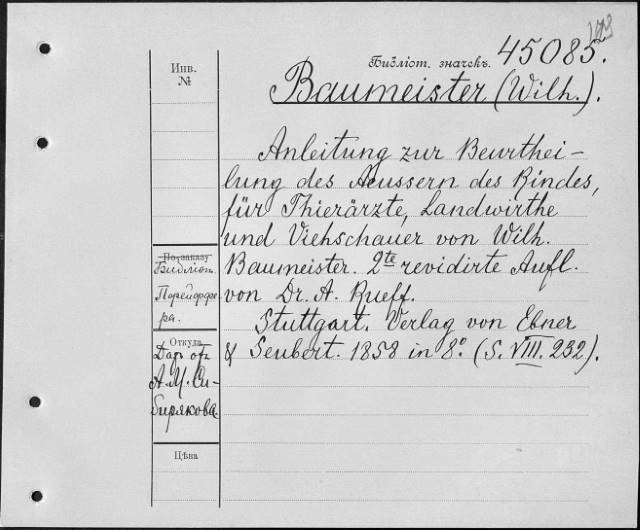 Библіот. значекъ. 45085.
Инв.
№
Baumeister (Wilh.).
Anleitung zur Beurthei-
lung des Aeussern des Rindes,
für Thierärzte, Landwirthe
und Viehschauer von Wilh.
Baumeister. 2te revidirte Aufl.
von Dr. A. Rueff.
Stuttgart. Verlag von Ebner
& Seubert. 1858 in 8º. (S. VIII. 232).
По заказу
Библіот.
Откуда
Даръ отъ
А. М. Си-
бирякова
Цѣна